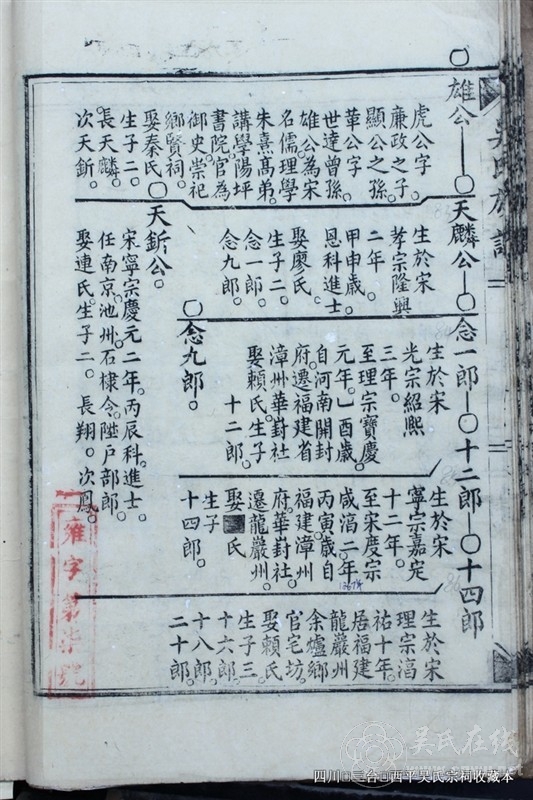 吳氏族譜
〇雄公—〇天麟公—〇念一郎—〇十二郎—〇十四郎
虎公字
廉政之子
顯公之孫。
華公字
世達曾孫
雄公為宋
名儒理學
朱熹高弟。
講學陽坪
書院。官為
御史崇祀
鄉賢祠。
娶秦氏
生子二。
長天麟。
次天釿。
生於宋
孝宗隆興
二年。
甲申歲。
恩科進士
娶廖氏。
生子二。
念一郎。
念九郎。
〇天釿公。
宋寧宗慶元二年。丙辰科。進士。
任南京。池州。石棣令。陞戶部郎。
娶連氏。生子二。長翔。次鳳。
生於宋
光宗紹熙
三年。
至理宗寶慶
元年。乙酉歲。
自河南開封
府。遷福建省
漳州華封社
娶賴氏。生子
十二郎。
〇念九郎。
生於宋
寧宗嘉定
十二年。
至宋慶宗
咸淳二年。
丙寅歲自
福建漳州
府。華封社。
遷龍巖州。
娶 氏
生子
十四郎。
生於宋
理宗淳
祐十年。
居福建
龍巖州
余爐鄉
官宅坊。
娶賴氏
生子三。
十六郎。
十八郎。
二十郎。
雍字第柒號
吴氏在线
四川□三台□西平吴氏宗祠收藏本